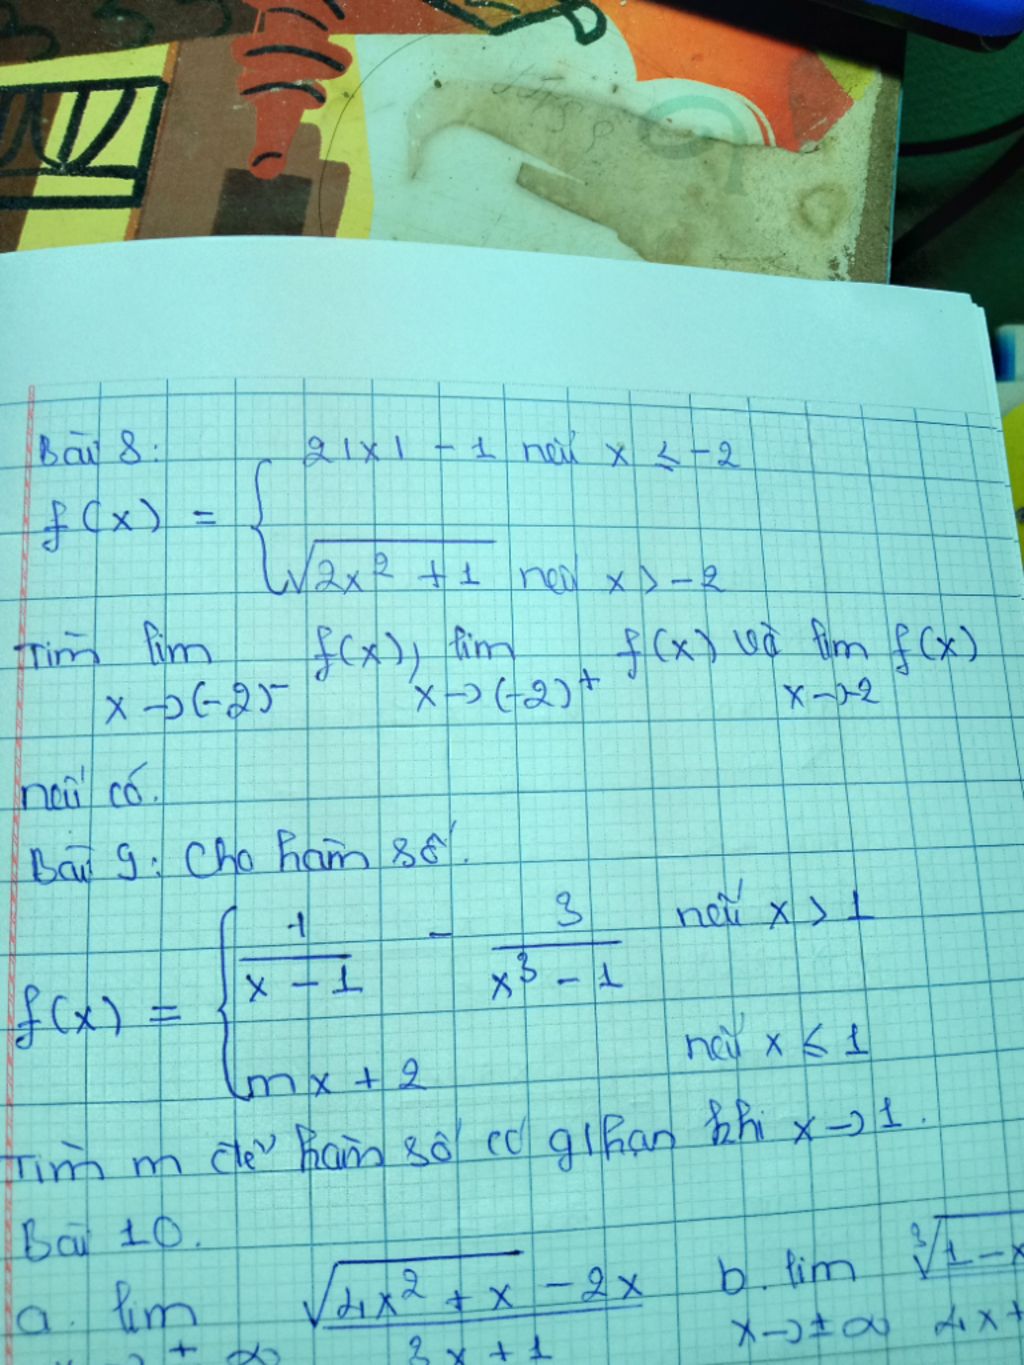 Bài 8:
f(x) = { 2|x| - 1 nếu x ≤ -2
√(2x² + 1) nếu x > -2
Tìm lim x→(-2)⁻ f(x), lim x→(-2)⁺ f(x) và lim x→-2 f(x)
nếu có.
Bài 9: Cho hàm số.
f(x) = { 1/(x - 1) - 3/(x³ - 1) nếu x > 1
mx + 2 nếu x ≤ 1
Tìm m để hàm số có g/hạn khi x → 1.
Bài 10.
a. lim x→±∞ (√(4x² + x) - 2x)/(3x + 1) b. lim x→±∞ ∛(1 - x / 4x +